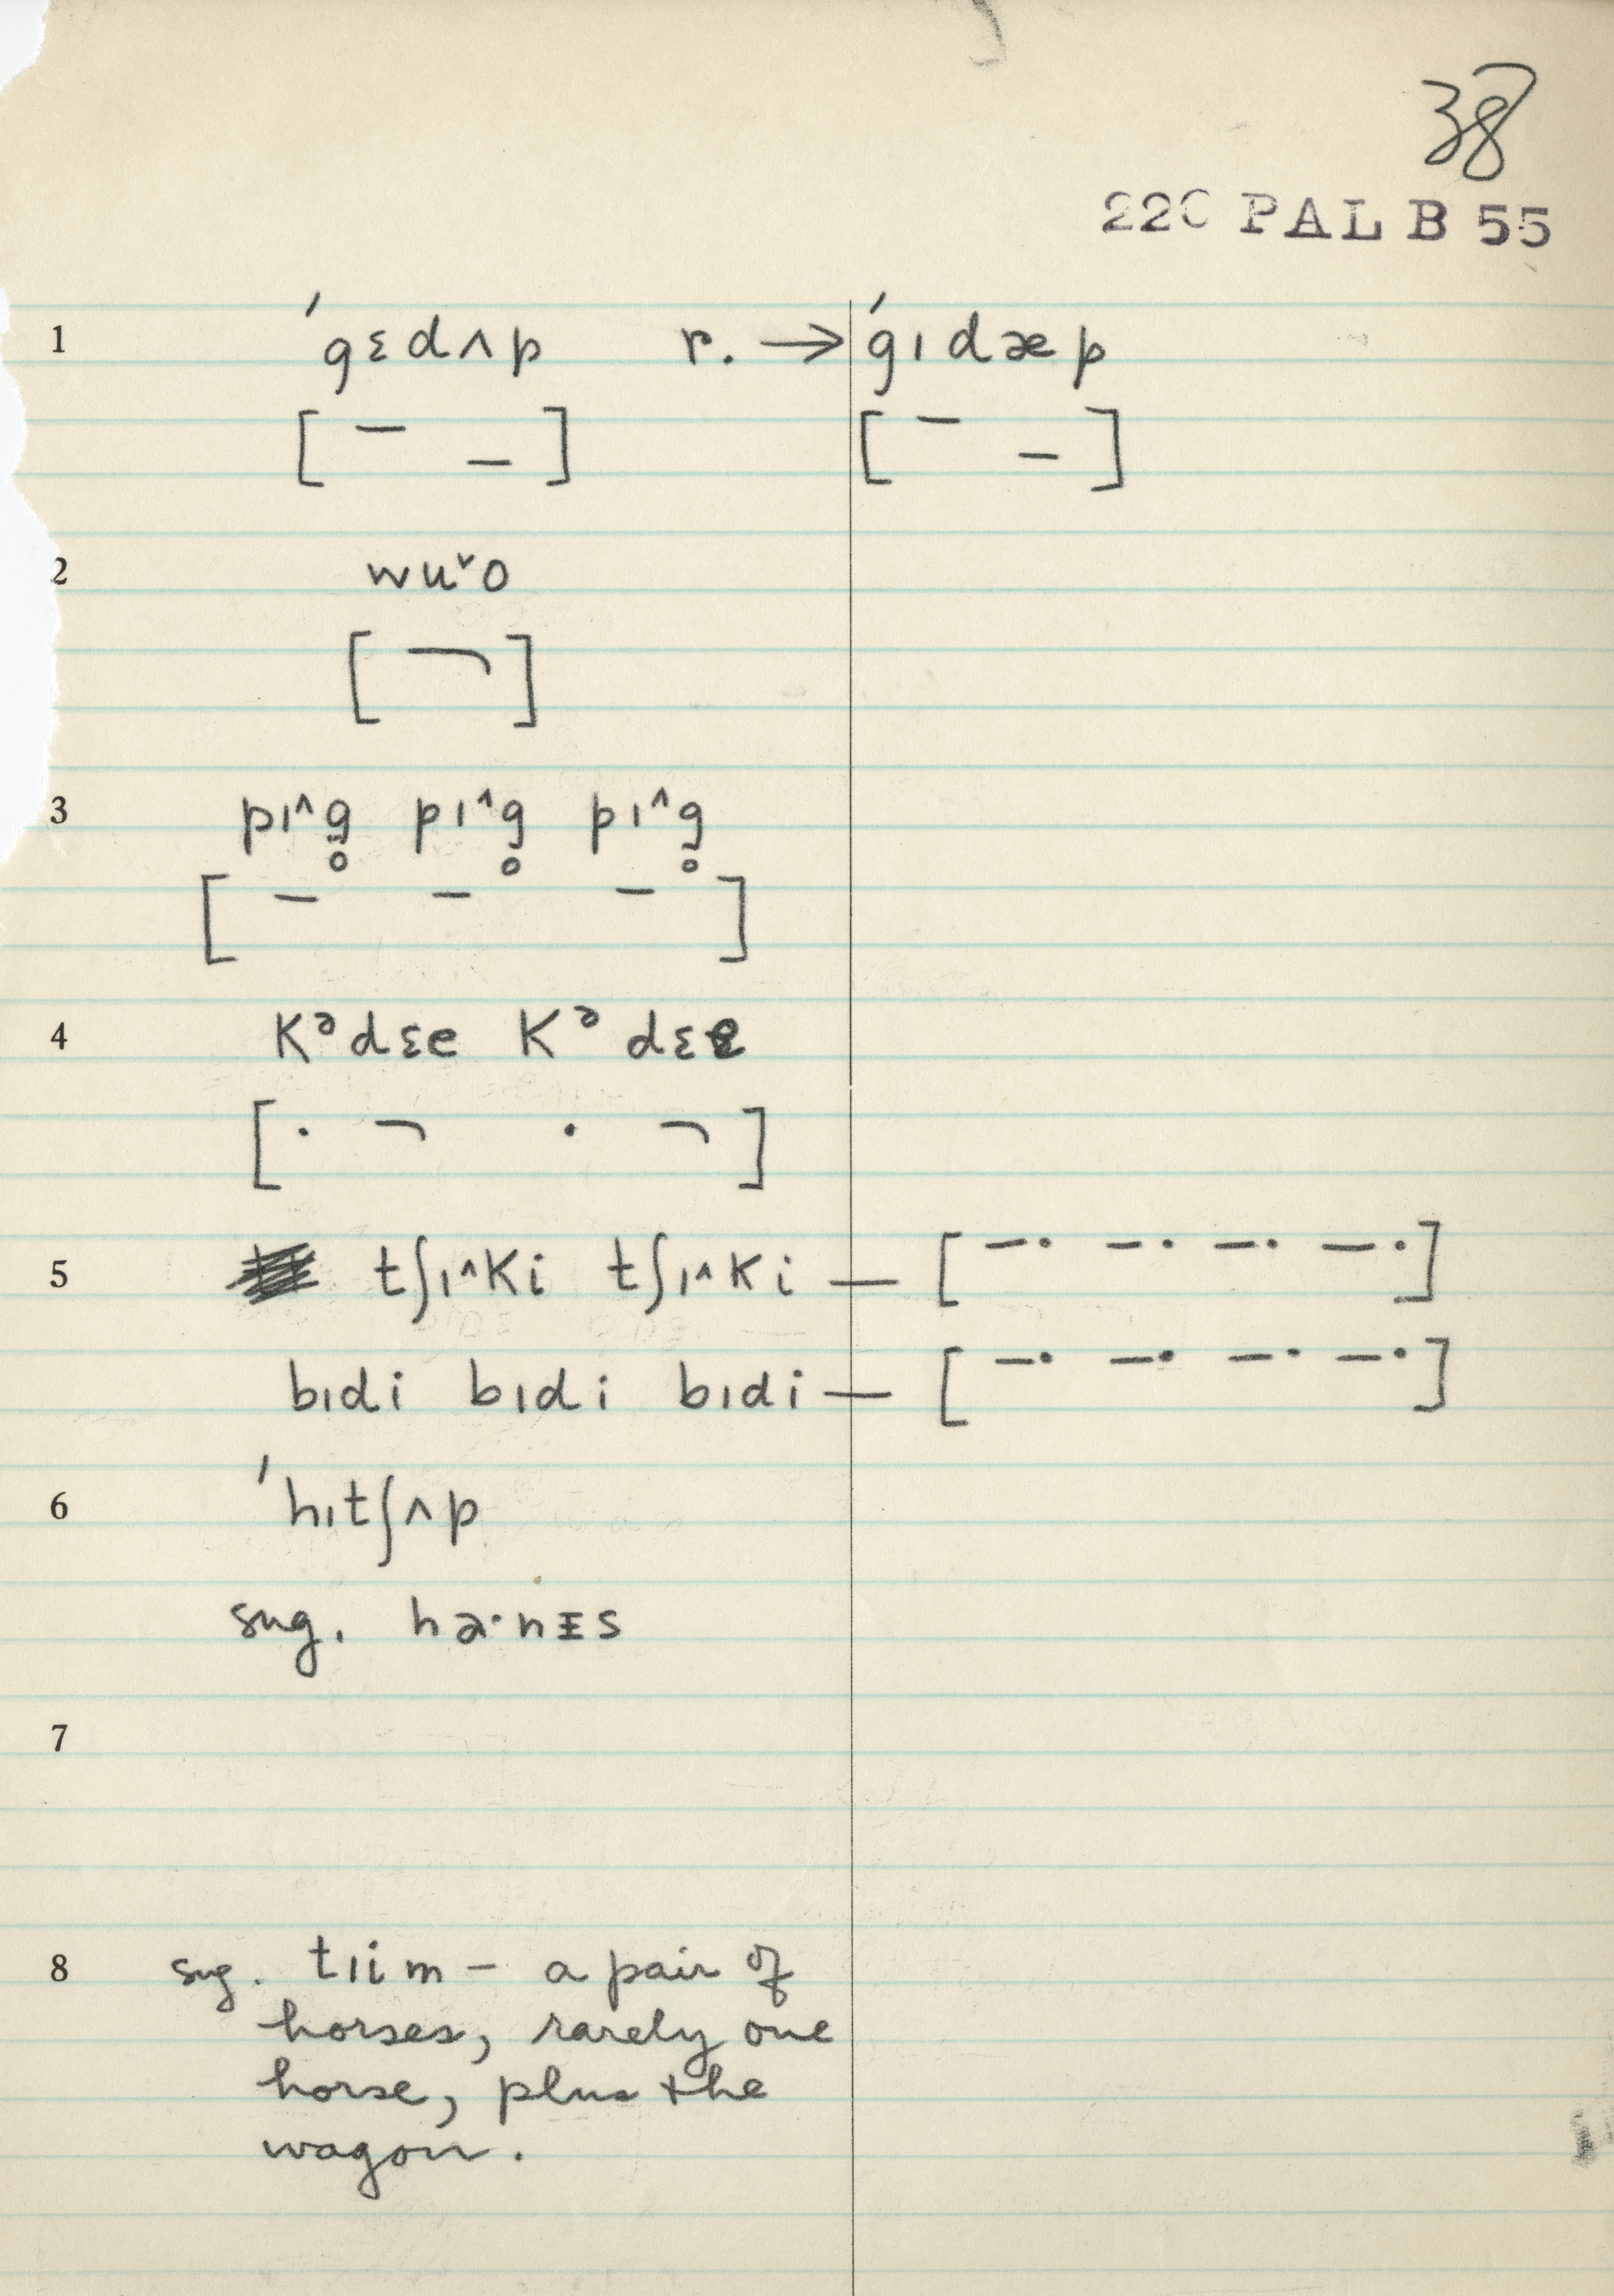 38
22C PAL B 55
1 ˈgɛdʌp r. → ˈgɪdæp
[ – – ] [ – – ]
2 wu˅o
3 pɪ^g̥ pɪ^g̥ pɪ^g̥
[ – – – ]
4 Kᵊdɛe Kᵊdɛe
5 tʃɪ^Ki tʃɪ^Ki — [ –· –· –· –· ]
bɪdi bɪdi bɪdi — [ –· –· –· –· ]
6 ˈhɪtʃʌp
sug. hɚ·nɪs
7
8 sug. tɪim – a pair of
horses, rarely one
horse, plus the
wagon.